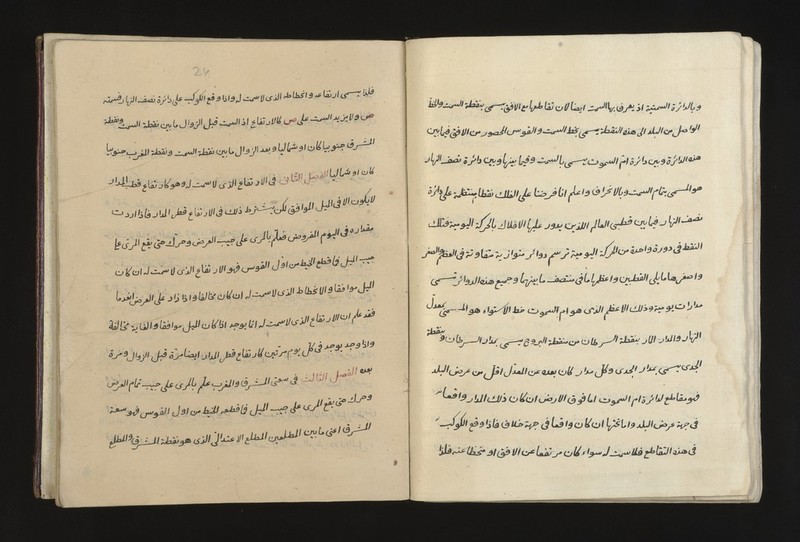 وبالدائرة السمتية اذ يعرف بها السمت ايضا لان تقاطعها مع الافق يسمى بنقطة السمت والخط
الواصل من البلد الى هذه النقطة يسمى بخط السمت والقوس المحصور من الافق فيما بين
هذه الدائرة وبين دائرة ام السموت يسمى بالسمت وفيما بينها وبين دائرة نصف النهار
هو المسمى بتمام السمت وبالانحراف واعلم انا فرضنا على الفلك نقطا منتظمة على دائرة
نصف النهار فيما بين قطبى العالم اللذين يدور عليهما الافلاك بالحركة اليومية فتلك
النقط فى دورة واحدة من الحركة اليومية ترسم دوائر متوازية متفاوتة فى العظم والصغر
واصغرها ما يلى القطبين واعظمها ما فى منتصف ما بينهما وجميع هذه الدوائر تسمى
مدارات يومية وذلك الاعظم الذى هو ام السموت خط الاستواء هو المسمى بمعدل
النهار والمدار المار بنقطة السرطان من منطقة البروج يسمى بمدار السرطان وبنقطة
الجدى يسمى بمدار الجدى وكل مدار كان بعده عن المعدل اقل من عرض البلد
فهو مقاطع لدائرة ام السموت اما فوق الارض ان كان ذلك المدار واقعا
فى جهة عرض البلد واما تحتها ان كان واقعا فى جهة خلاف فاذا وقع الكوكب
فى هذه التقاطع فلا سمت له سواء كان مرتفعا عن الافق او منحطا عنه فلذا
24
فلذا يسمى ارتفاعه وانحطاطه الذى لا سمت له واذا وقع الكوكب على دائرة نصف النهار فسمته
ص ولا يزيد السمت على ص كالارتفاع اذ السمت قبل الزوال ما بين نقطة السمت ونقطة
المشرق جنوبيا كان او شماليا وبعد الزوال ما بين نقطة السمت ونقطة المغرب جنوبيا
كان او شماليا الفصل الثانى فى الارتفاع الذى لا سمت له وهو كارتفاع قطر المدار
لا يكون الا فى الميل الموافق لكن يشترط ذلك فى الارتفاع قطر المدار فاذا اردت
مقداره فى اليوم المفروض فعلم بالمرى على جيب العرض وحرك حتى يقع المرى على
جيب الميل فما قطع الخيط من اول القوس فهو الارتفاع الذى لا سمت له ان كان
الميل موافقا والانحطاط الذى لا سمت له ان كان مخالفا واذا زاد على العرض انعدما
فقد علم ان الارتفاع الذى لا سمت له انما يوجد اذا كان الميل موافقا والغاية مخالفة
واذا وجد يوجد فى كل يوم مرتين كارتفاع قطر المدار ايضا مرة قبل الزوال ومرة
بعده الفصل الثالث فى سعتى المشرق والمغرب علم بالمرى على جيب تمام العرض
وحرك حتى يقع المرى على جيب الميل فما قطعه الخيط من اول القوس فهو سعة
المشرق اعنى ما بين المطلعين المطلع الاعتدالى الذى هو نقطة المشرق والمطلع